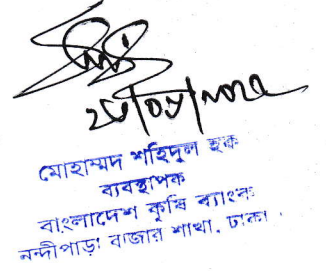 মোহাম্মদ শহিদুল হক
ব্যবস্থাপক
বাংলাদেশ কৃষি ব্যাংক
নন্দীপাড়া বাজার শাখা, ঢাকা।